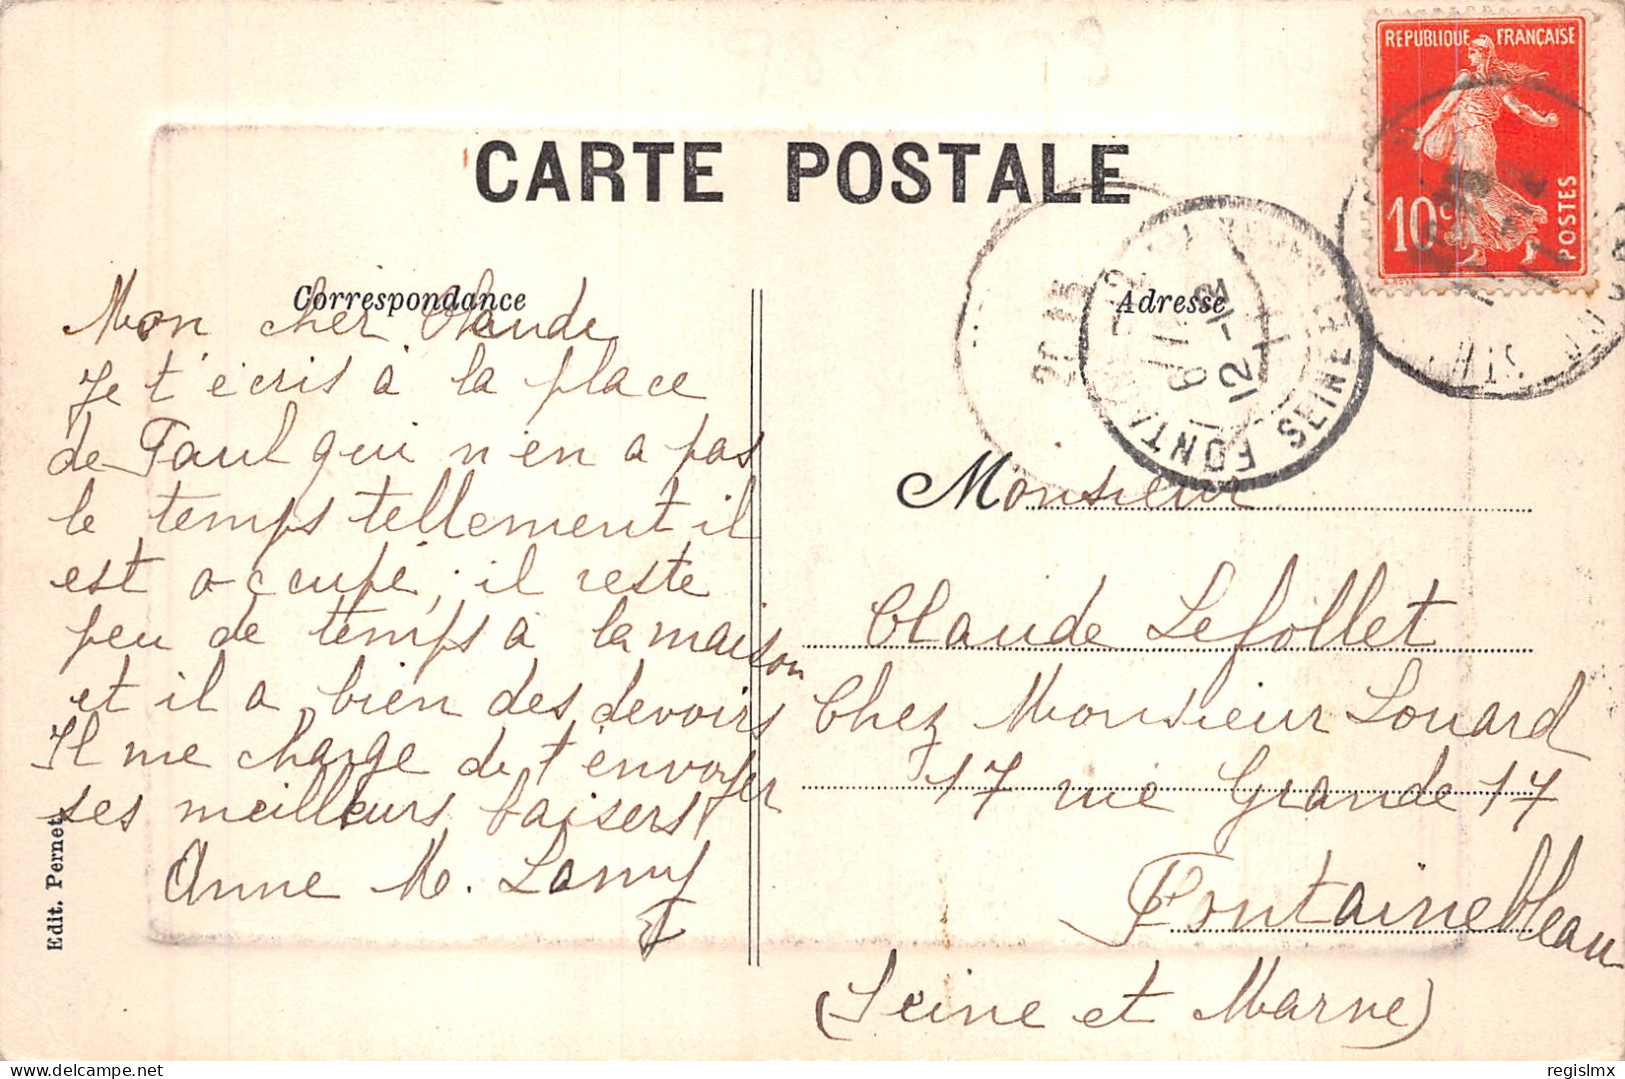 CARTE POSTALE
REPUBLIQUE FRANÇAISE
10c
POSTES
Correspondance
Adresse
Mon cher Claude
Je t'écris à la place
de Paul qui n'en a pas
le temps tellement il
est occupé, il reste
peu de temps à la maison
et il a bien des devoirs
Il me charge de t'envoyer
ses meilleurs baisers
Anne M. Lamy
Edit. Pernet
Monsieur
Claude Lefollet
Chez Monsieur Louard
17 rue Grande 17
Fontainebleau
(Seine et Marne)
12
SEINE ET
regislmx